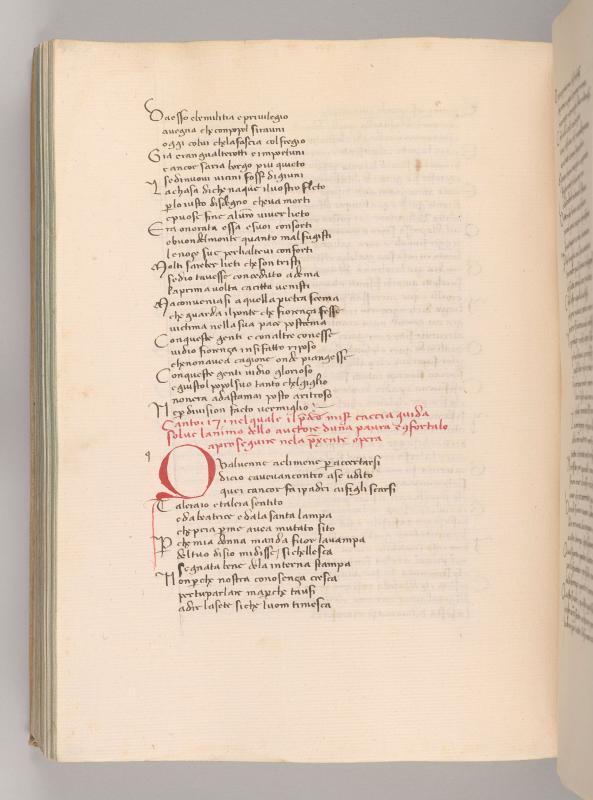 Da esso ebe militia e privilegio
avegna che con popol si rauni
oggi colui che la fascia col fregio
Gia eran gualterotti e importuni
e ancor saria borgo piu quieto
se di nuovi vicini fosser digiuni
La chasa di che naque il vostro fleto
p lo iusto disdegno che va morti
e puose fine al vro viver lieto
Era onorata essa e suoi consorti
o buondelmonte quanto mal fugisti
le noze sue per li altrui conforti
Molti sareber lieti che son tristi
se dio tavesse conceduto ad ema
la prima volta ca citta venisti
Ma conveniasi a quella pietra scema
che guarda il ponte che fiorenza fesse
victima nella sua pace postrema
Con queste genti e con altre con esse
vidio fiorenza in si fatto riposo
che non avea cagione onde piangesse
Con queste genti vidio glorioso
e giusto l popol suo tanto chel giglio
non era ad asta mai posto aritroso
Ne p division facto vermiglio
Canto 17 nel quale il pdco miss caccia guida
solve lanimo dello auctore duna paura e cofortalo
a proseguire nela psente opera
Qual venne a climene p accertarsi
di cio cavea incontro a se udito
quei cancor fa i padri a figli scarsi
Tal era io e tal era sentito
e da beatrice e da la santa lampa
che pria p me avea mutato sito
P che mia donna manda fuor la vampa
del tuo disio mi disse / si chellesca
segnata bene dela interna stampa
Non pche nostra conosenza cresca
per tu parlare ma pche tausi
a dir la sete si che luom ti mesca